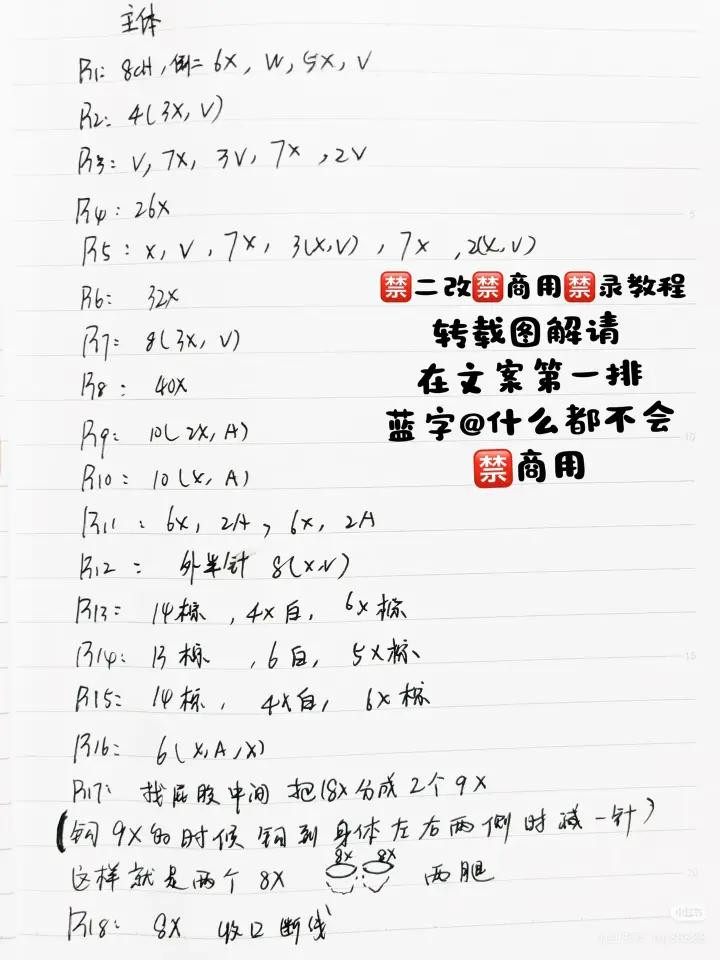 主体
R1: 8CH, 倒二6X, W, 5X, V
R2: 4(3X, V)
R3: V, 7X, 3V, 7X, 2V
R4: 26X
R5: X, V, 7X, 3(X,V), 7X, 2(X,V)
🈲二改🈲商用🈲录教程
R6: 32X
转载图解请
R7: 8(3X, V)
在文案第一排
R8: 40X
蓝字@什么都不会
R9: 10(2X, A)
🈲商用
R10: 10(X, A)
R11: 6X, 2A, 6X, 2A
R12: 外半针 8(X,V)
R13: 14棕, 4X白, 6X棕
R14: 13棕, 6白, 5X棕
R15: 14棕, 4X白, 6X棕
R16: 6(X,A,X)
R17: 找屁股中间 把18X分成2个9X
(钩9X的时候钩到身体左右两侧时减一针)
这样就是两个8X 8X 8X 两腿
R18: 8X 收口断线
小红书